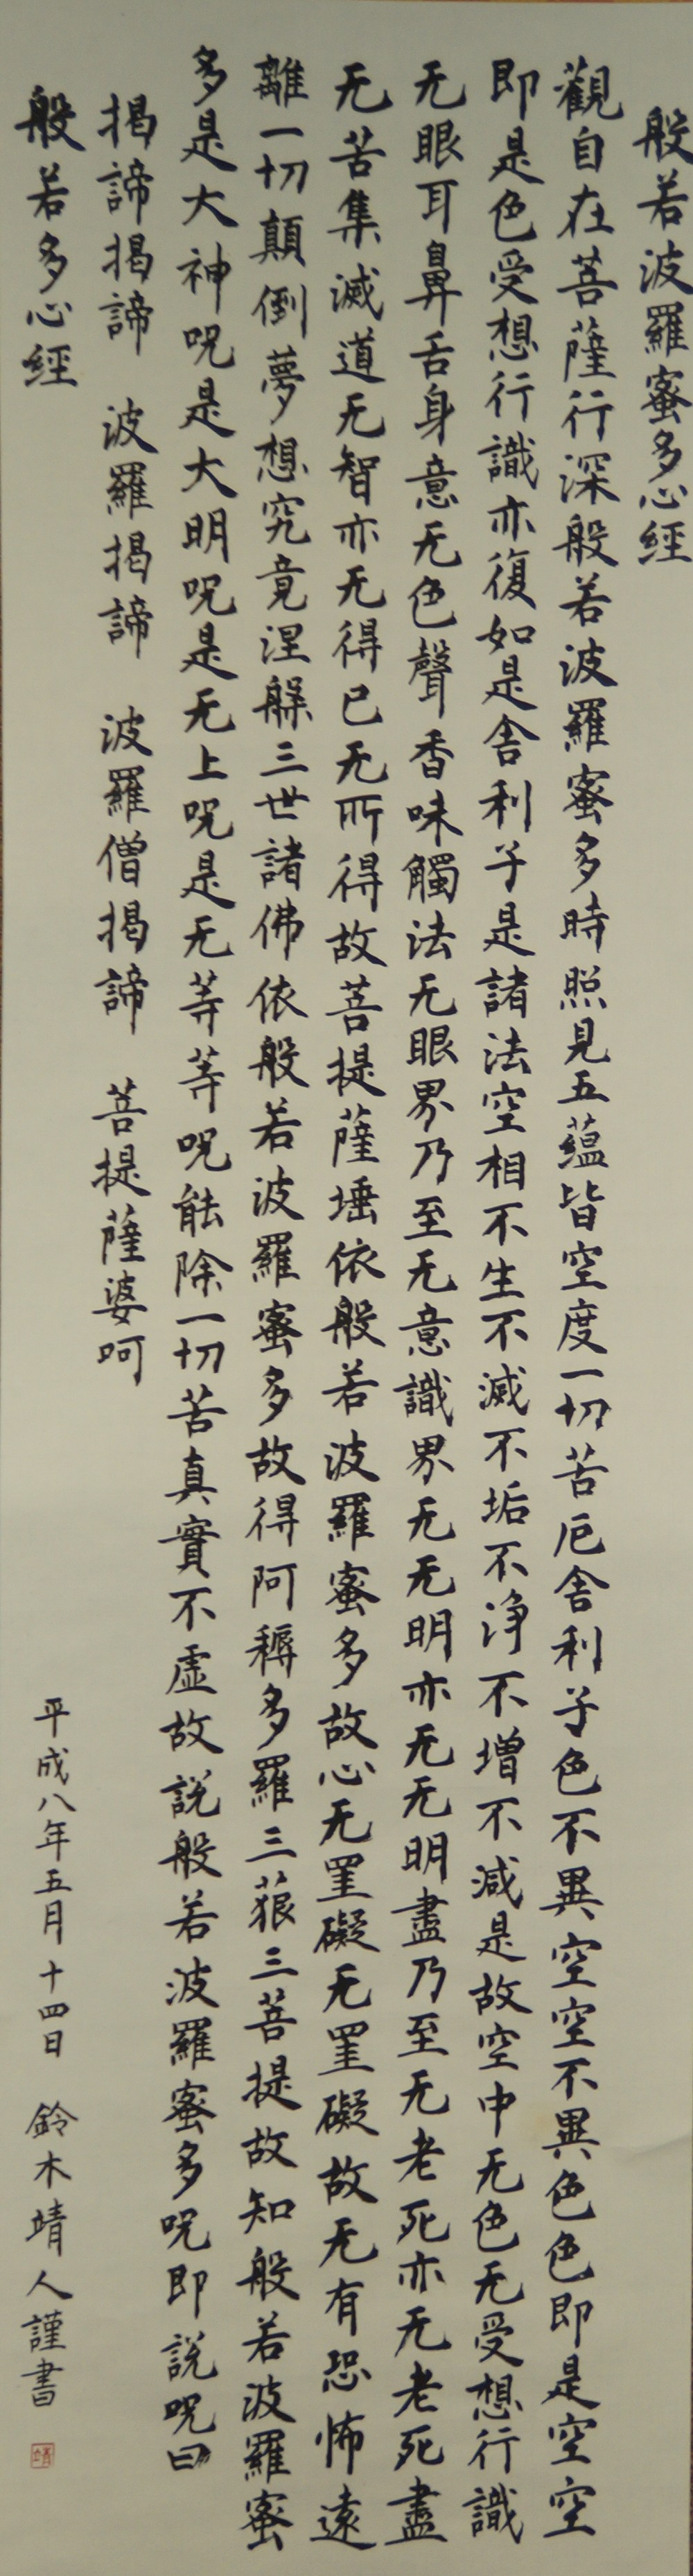 般若波羅蜜多心經
觀自在菩薩行深般若波羅蜜多時照見五蘊皆空度一切苦厄舍利子色不異空空不異色色即是空空
即是色受想行識亦復如是舍利子是諸法空相不生不滅不垢不浄不増不減是故空中无色无受想行識
无眼耳鼻舌身意无色聲香味觸法无眼界乃至无意識界无无明亦无无明盡乃至无老死亦无老死盡
无苦集滅道无智亦无得已无所得故菩提薩埵依般若波羅蜜多故心无罣礙无罣礙故无有恐怖遠
離一切顛倒夢想究竟涅槃三世諸佛依般若波羅蜜多故得阿耨多羅三藐三菩提故知般若波羅蜜
多是大神呪是大明呪是无上呪是无等等呪能除一切苦真實不虚故説般若波羅蜜多呪即説呪曰
揭諦揭諦　波羅揭諦　波羅僧揭諦　菩提薩婆呵
般若多心經
平成八年五月十四日　鈴木靖人謹書
靖